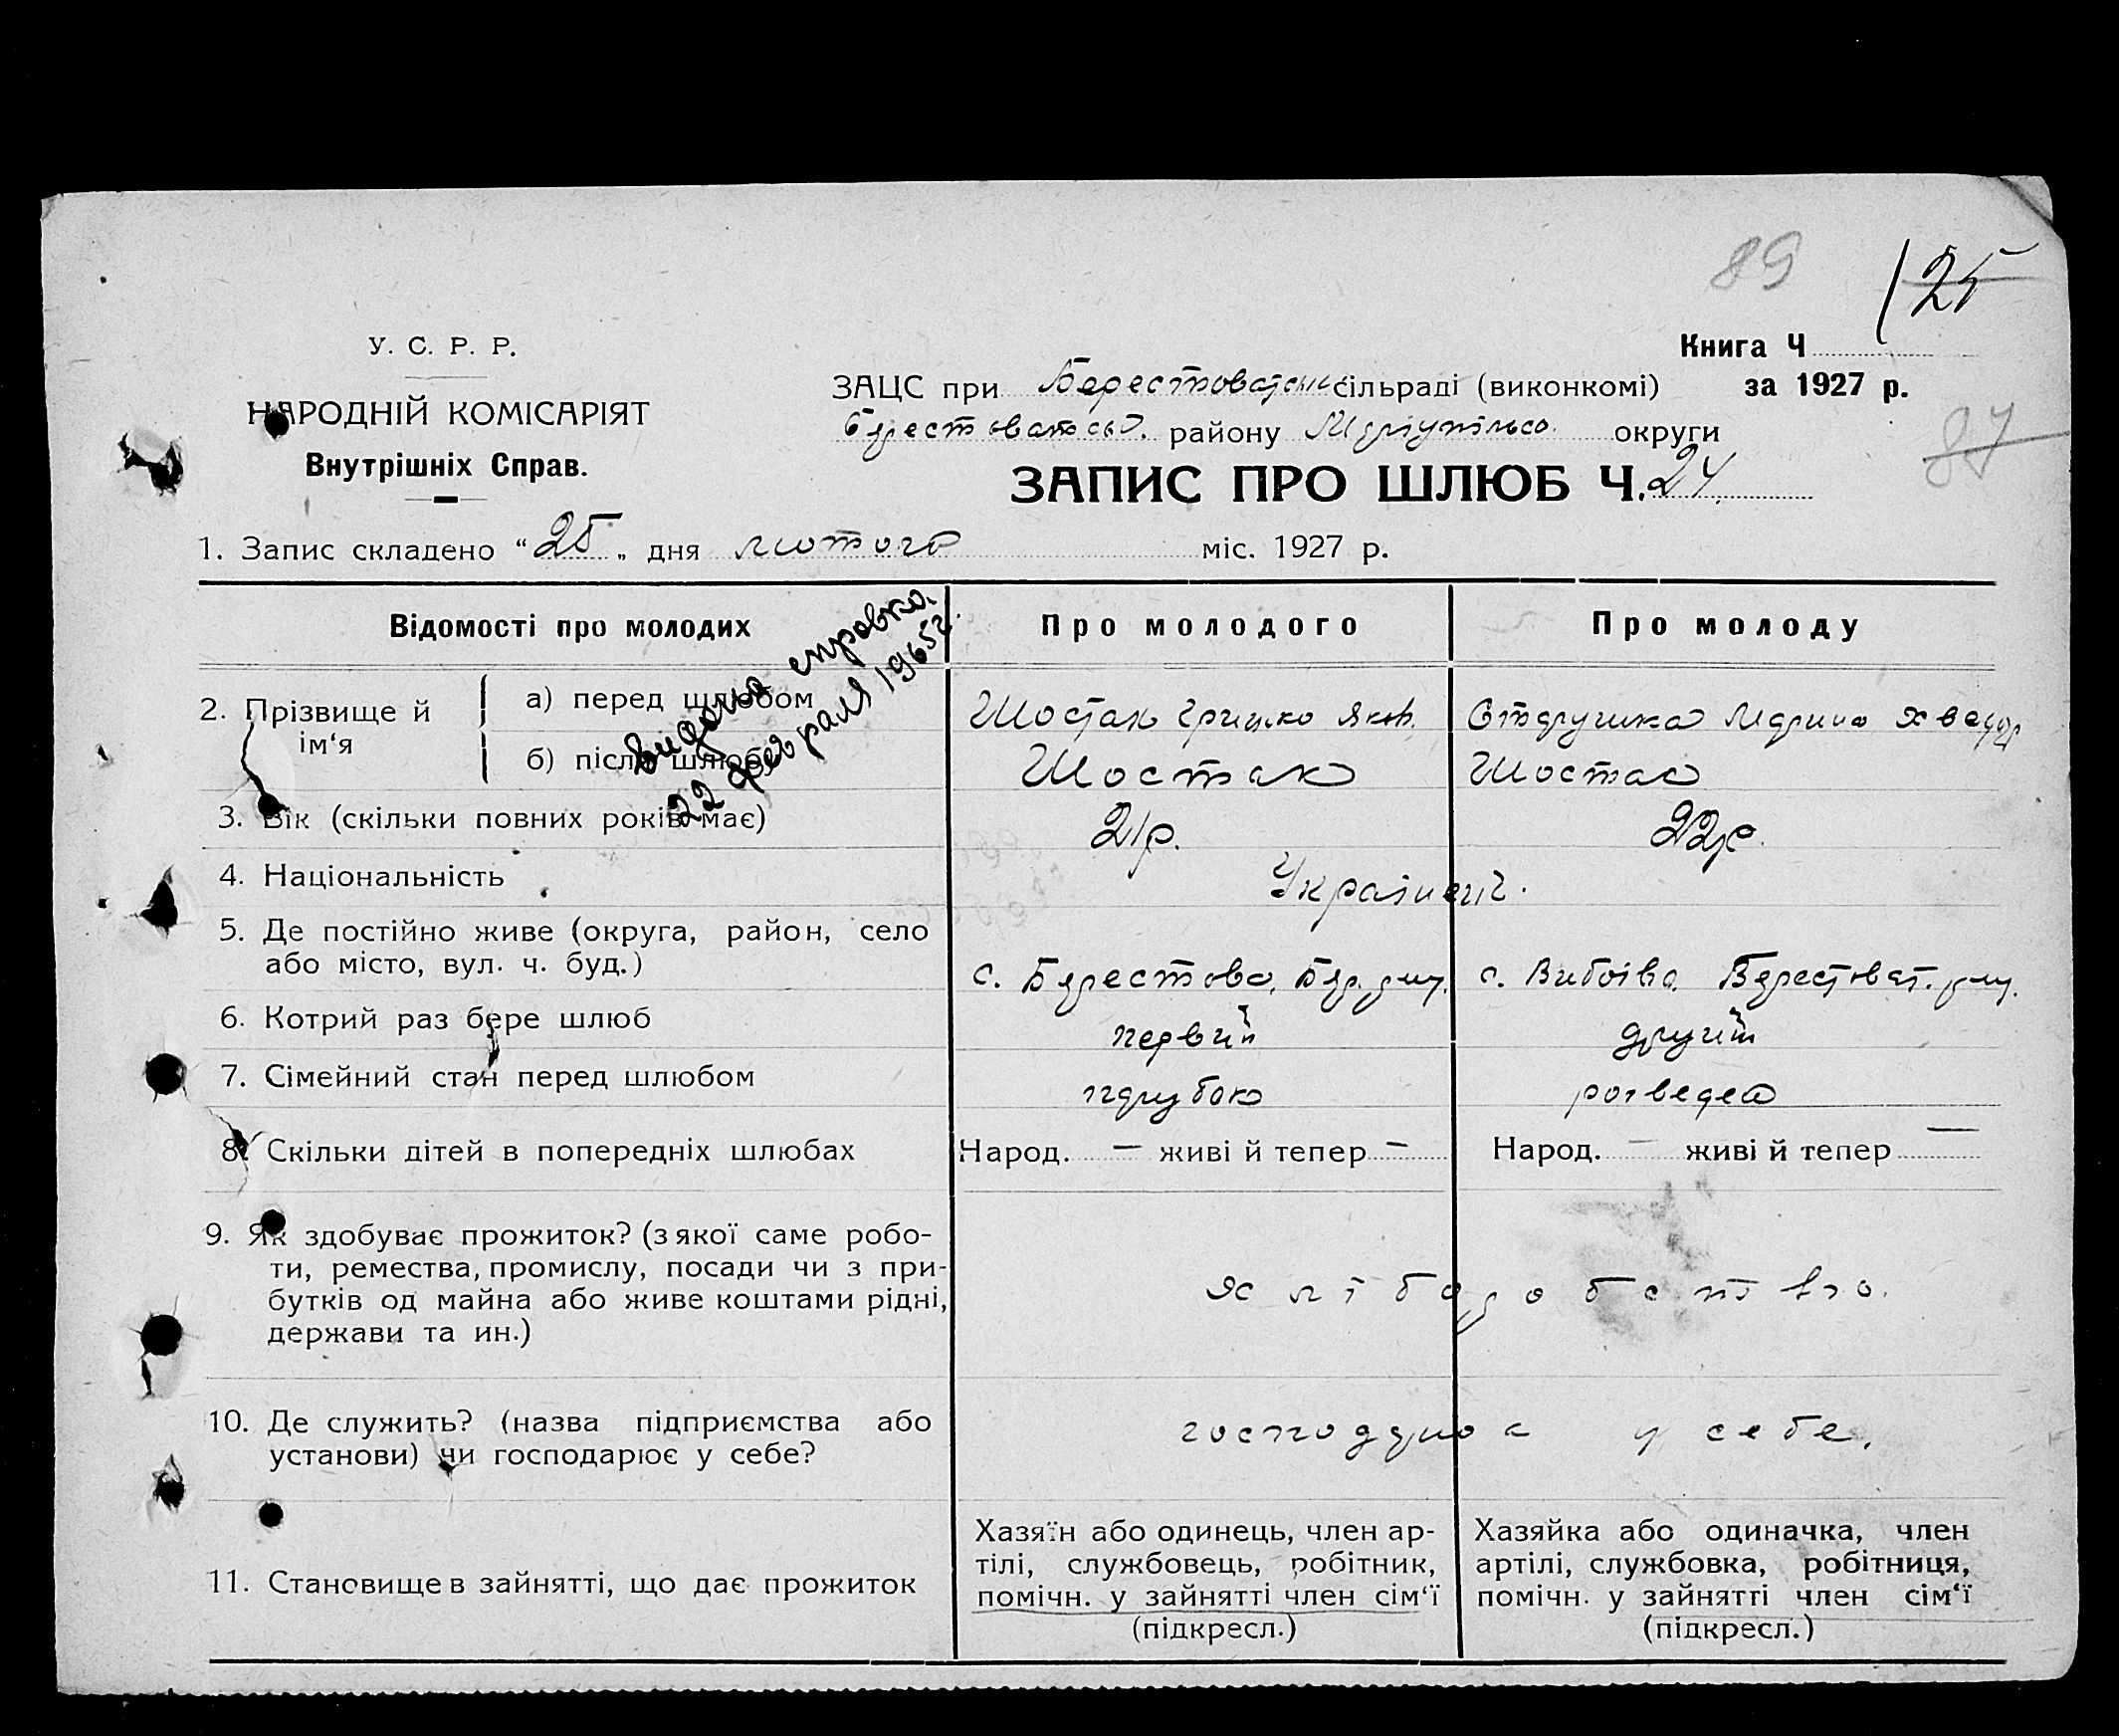 89
125
У. С. Р. Р.
НАРОДНІЙ КОМІСАРІЯТ
Внутрішніх Справ.
Книга Ч
за 1927 р.
87
ЗАЦС при Берестоватськ сільраді (виконкомі)
району округи
ЗАПИС ПРО ШЛЮБ Ч. 24.
1. Запис складено “25„ дня лютого міс. 1927 р.
видана справка
22 февраля 1965г.
Відомості про молодих Про молодого Про молоду
2. Прізвище й ім‘я
а) перед шлюбом Шостак Грицько Яков.
б) після шлюбу Шостак Шостак
3. Вік (скільки повних років має) 21р. 22р.
4. Національність
5. Де постійно живе (округа, район, село
або місто, вул. ч. буд.) с. Берестова, Бер. с.
6. Котрий раз бере шлюб первий другий
7. Сімейний стан перед шлюбом парубок розведена
8. Скільки дітей в попередніх шлюбах Народ. — живі й тепер — Народ. — живі й тепер —
9. Як здобуває прожиток? (з якої саме робо-
ти, ремества, промислу, посади чи з при-
бутків од майна або живе коштами рідні,
держави та ин.)
хліборобство.
10. Де служить? (назва підприємства або
установи) чи господарює у себе?
у себе.
11. Становище в зайнятті, що дає прожиток
Хазяїн або одинець, член ар-
тілі, службовець, робітник,
помічн. у зайнятті член сім‘ї
(підкресл.)
Хазяйка або одиначка, член
артілі, службовка, робітниця,
помічн. у зайнятті член сім‘ї
(підкресл.)